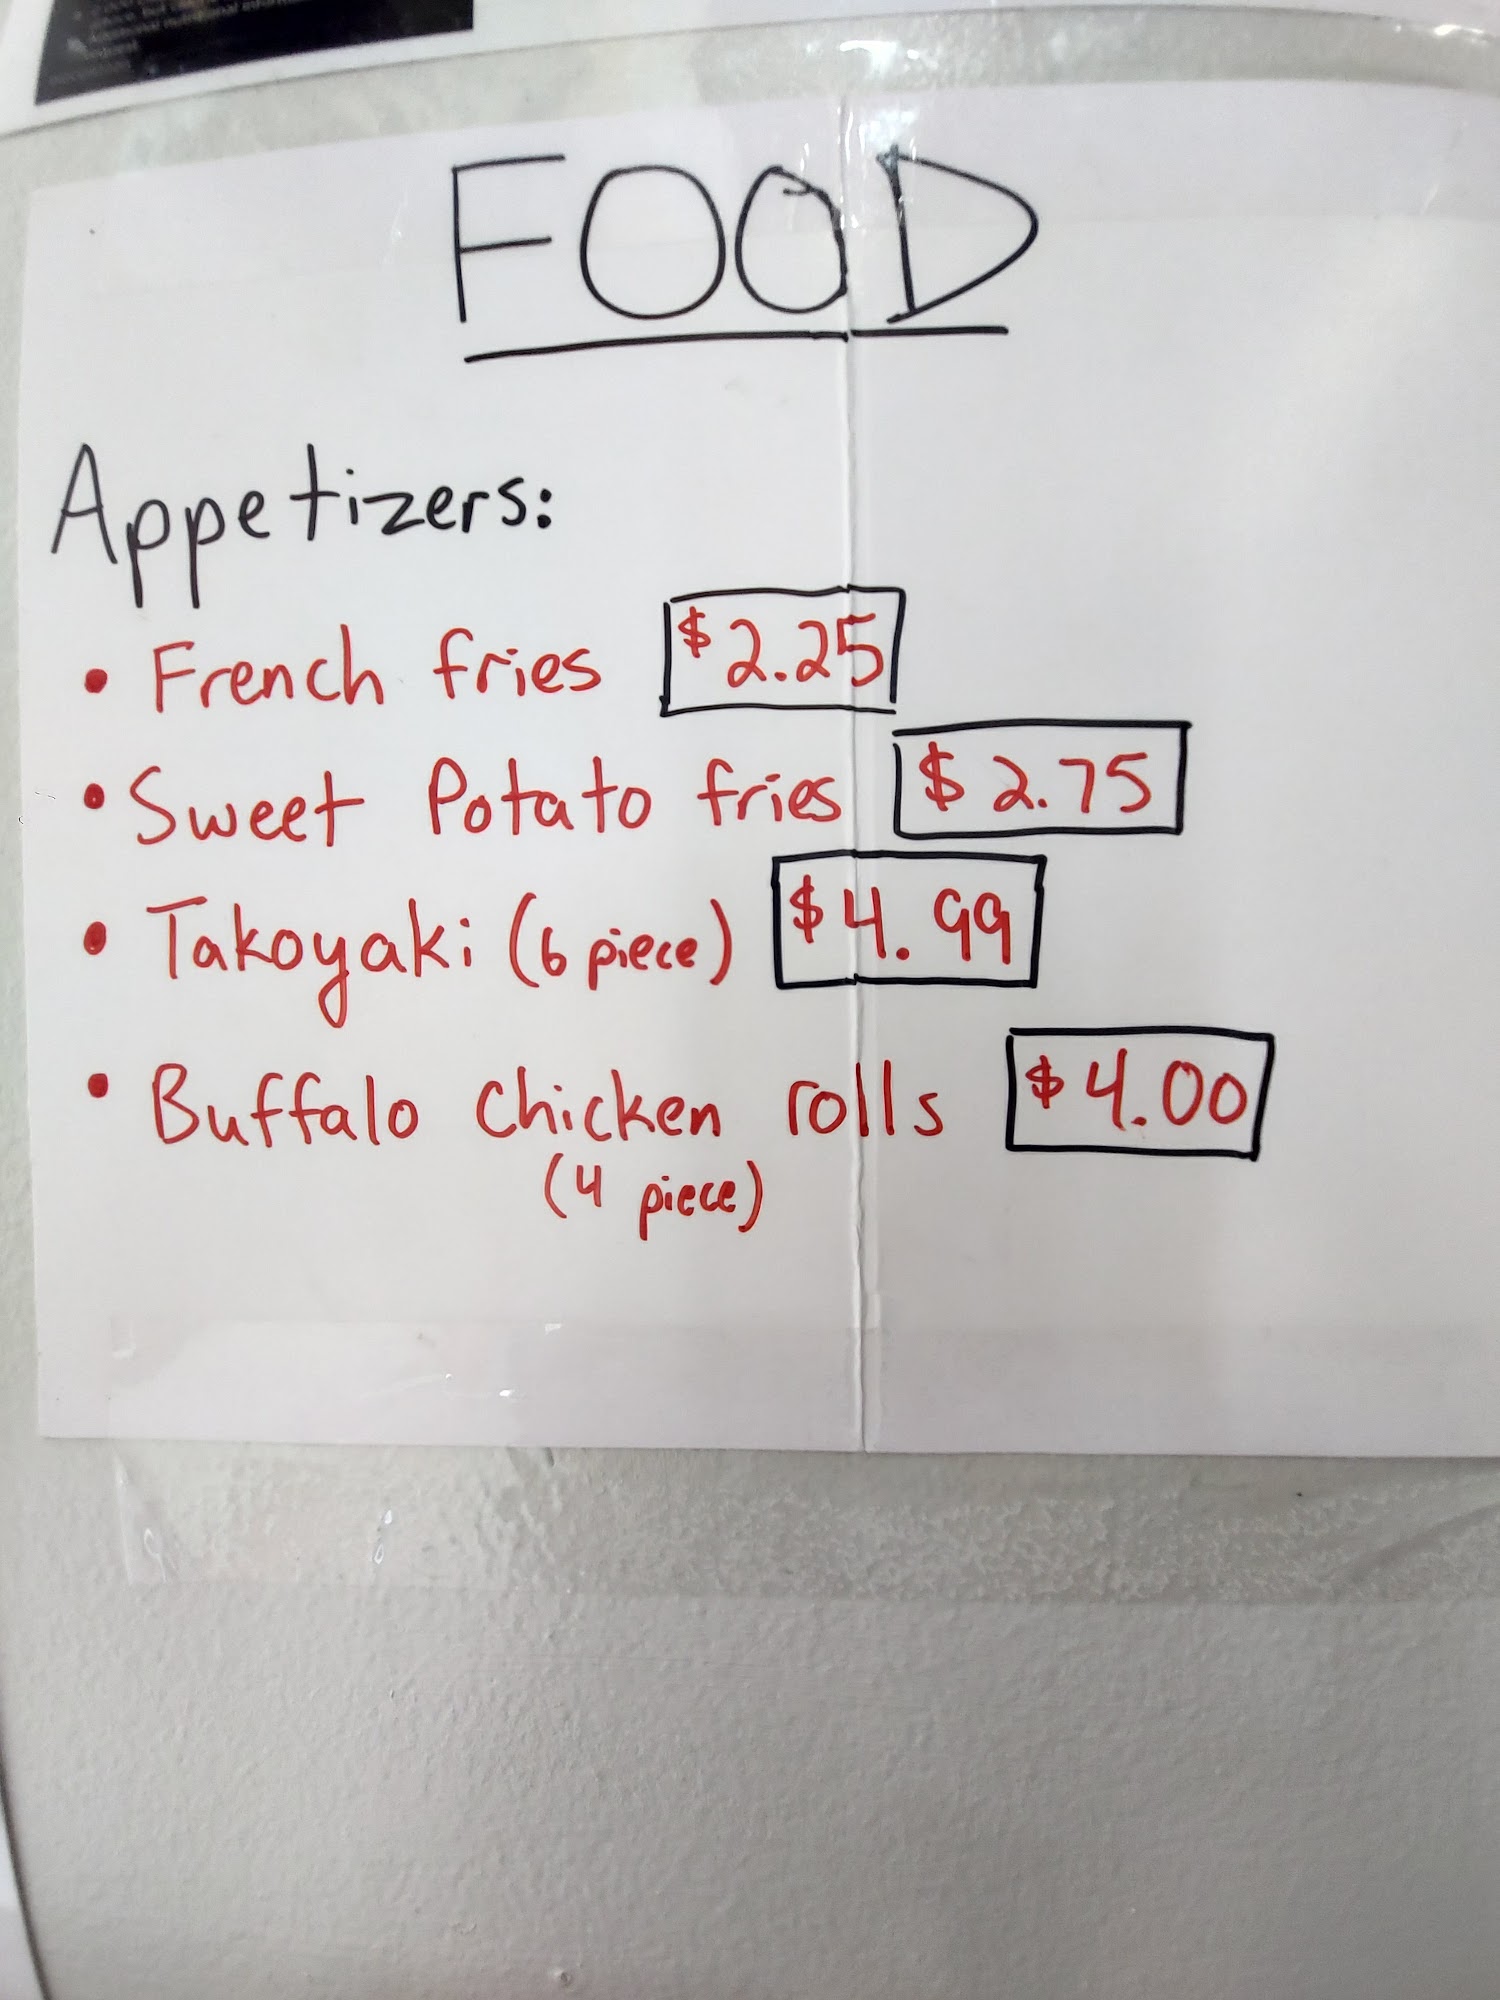 FOOD
Appetizers:
• French fries $2.25
• Sweet Potato fries $2.75
• Takoyaki (6 piece) $4.99
• Buffalo chicken rolls $4.00
(4 piece)